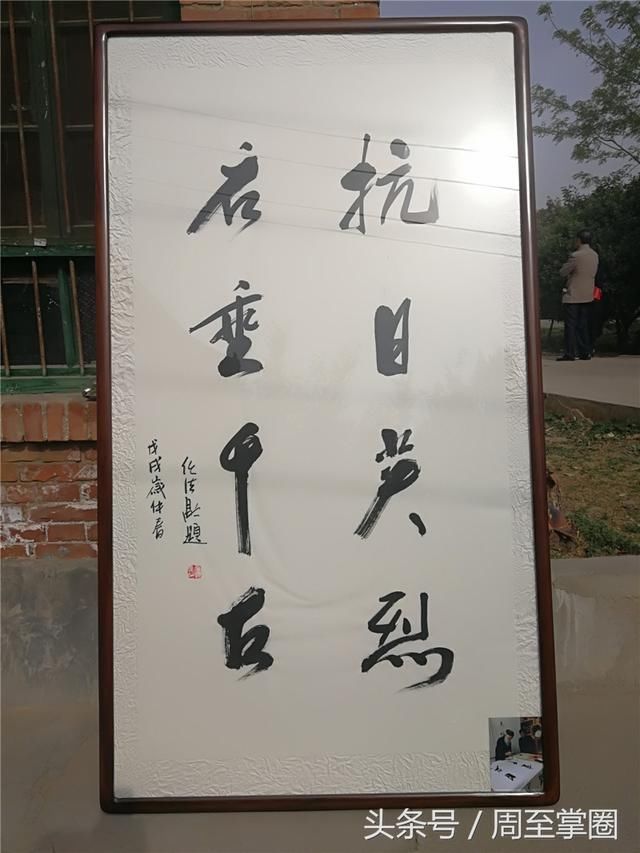 抗日英烈
名垂千古
任法融題
戊戌歲仲春
头条号 / 周至掌圈